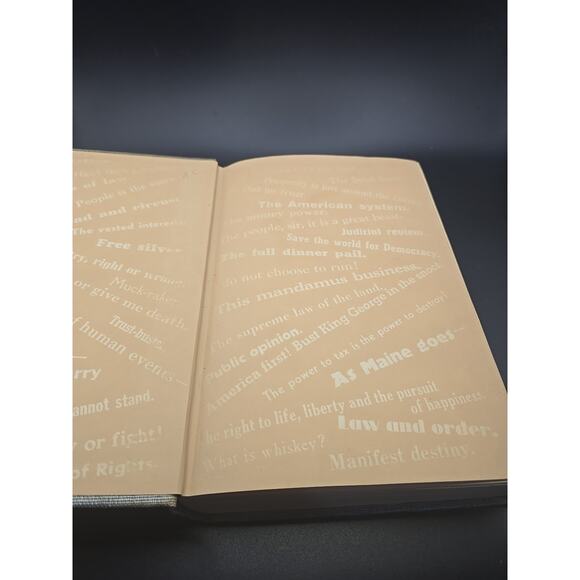 of law
People is the
and circuse
The vested interests
Free silver.
ry, right or wrong.
Muck-raker.
or give me death.
Trust-busts.
of human events—
rry
annot stand.
y or fight!
of Rights.
Prosperity is just around the corner.
The American system.
The money power.
The people, sir, it is a great beast.
Judicial review.
Save the world for Democracy.
The full dinner pail.
I do not choose to run!
This mandamus business.
The supreme law of the land.
Public opinion.
America first! Bust King George in the snoot.
The power to tax is the power to destroy!
As Maine goes—
The right to life, liberty and the pursuit
of happiness.
Law and order.
What is whiskey?
Manifest destiny.